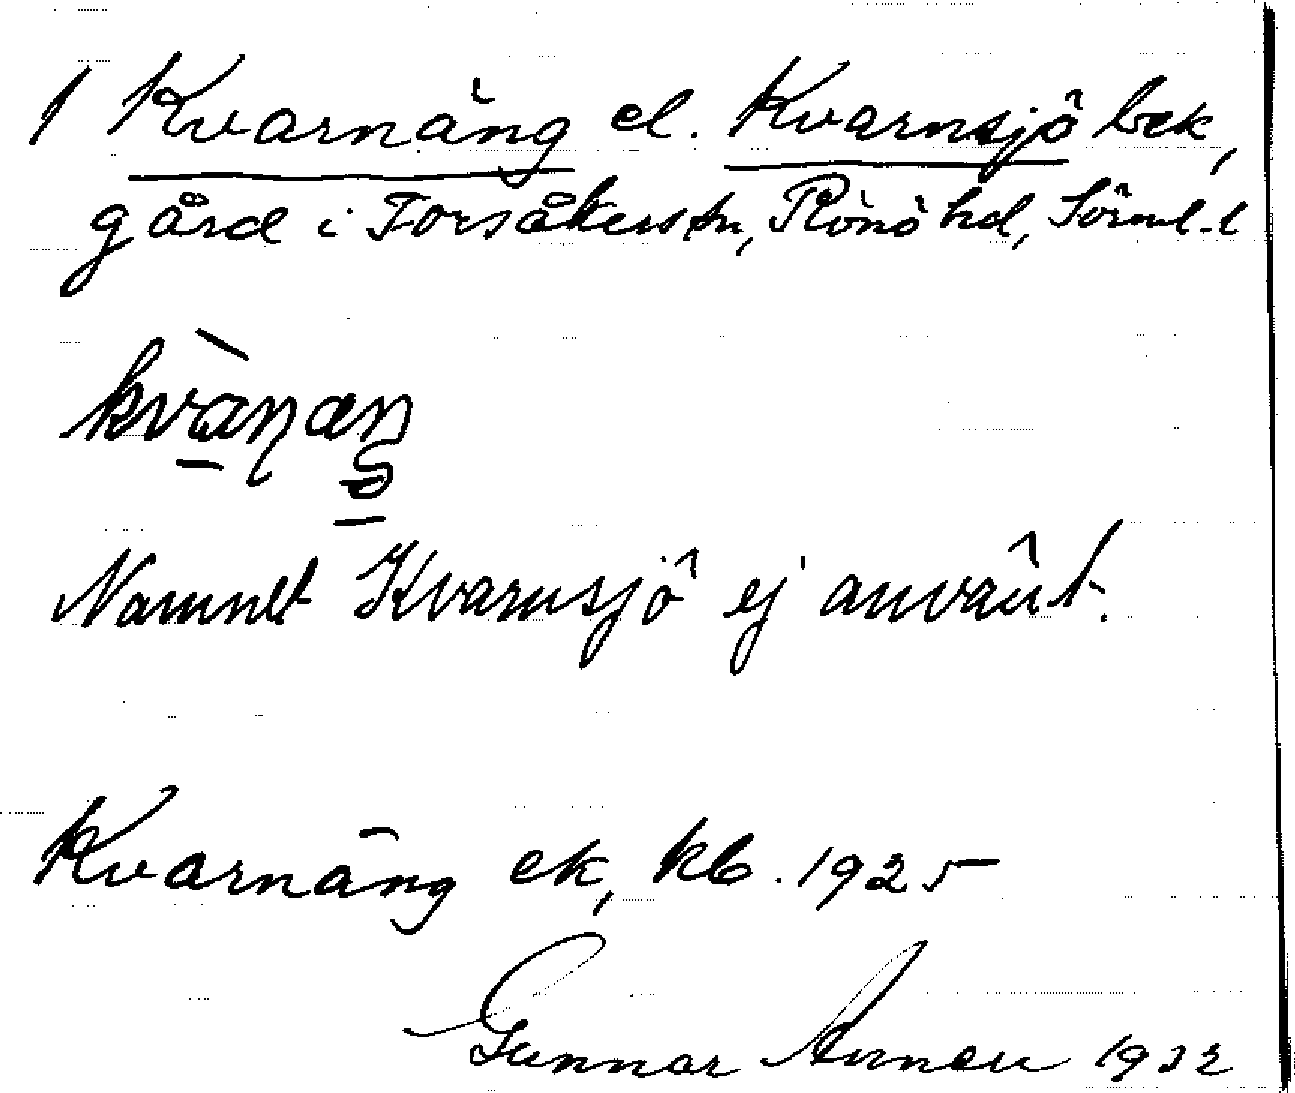 1 Kvarnäng el. Kvarnsjö bek,
gård i Torsåkers sn, Rönö hd, Sörml. l
kvànæŋ
Namnet Kvarnsjö ej använt.
Kvarnäng ek, kb. 1925
Gunnar 1932